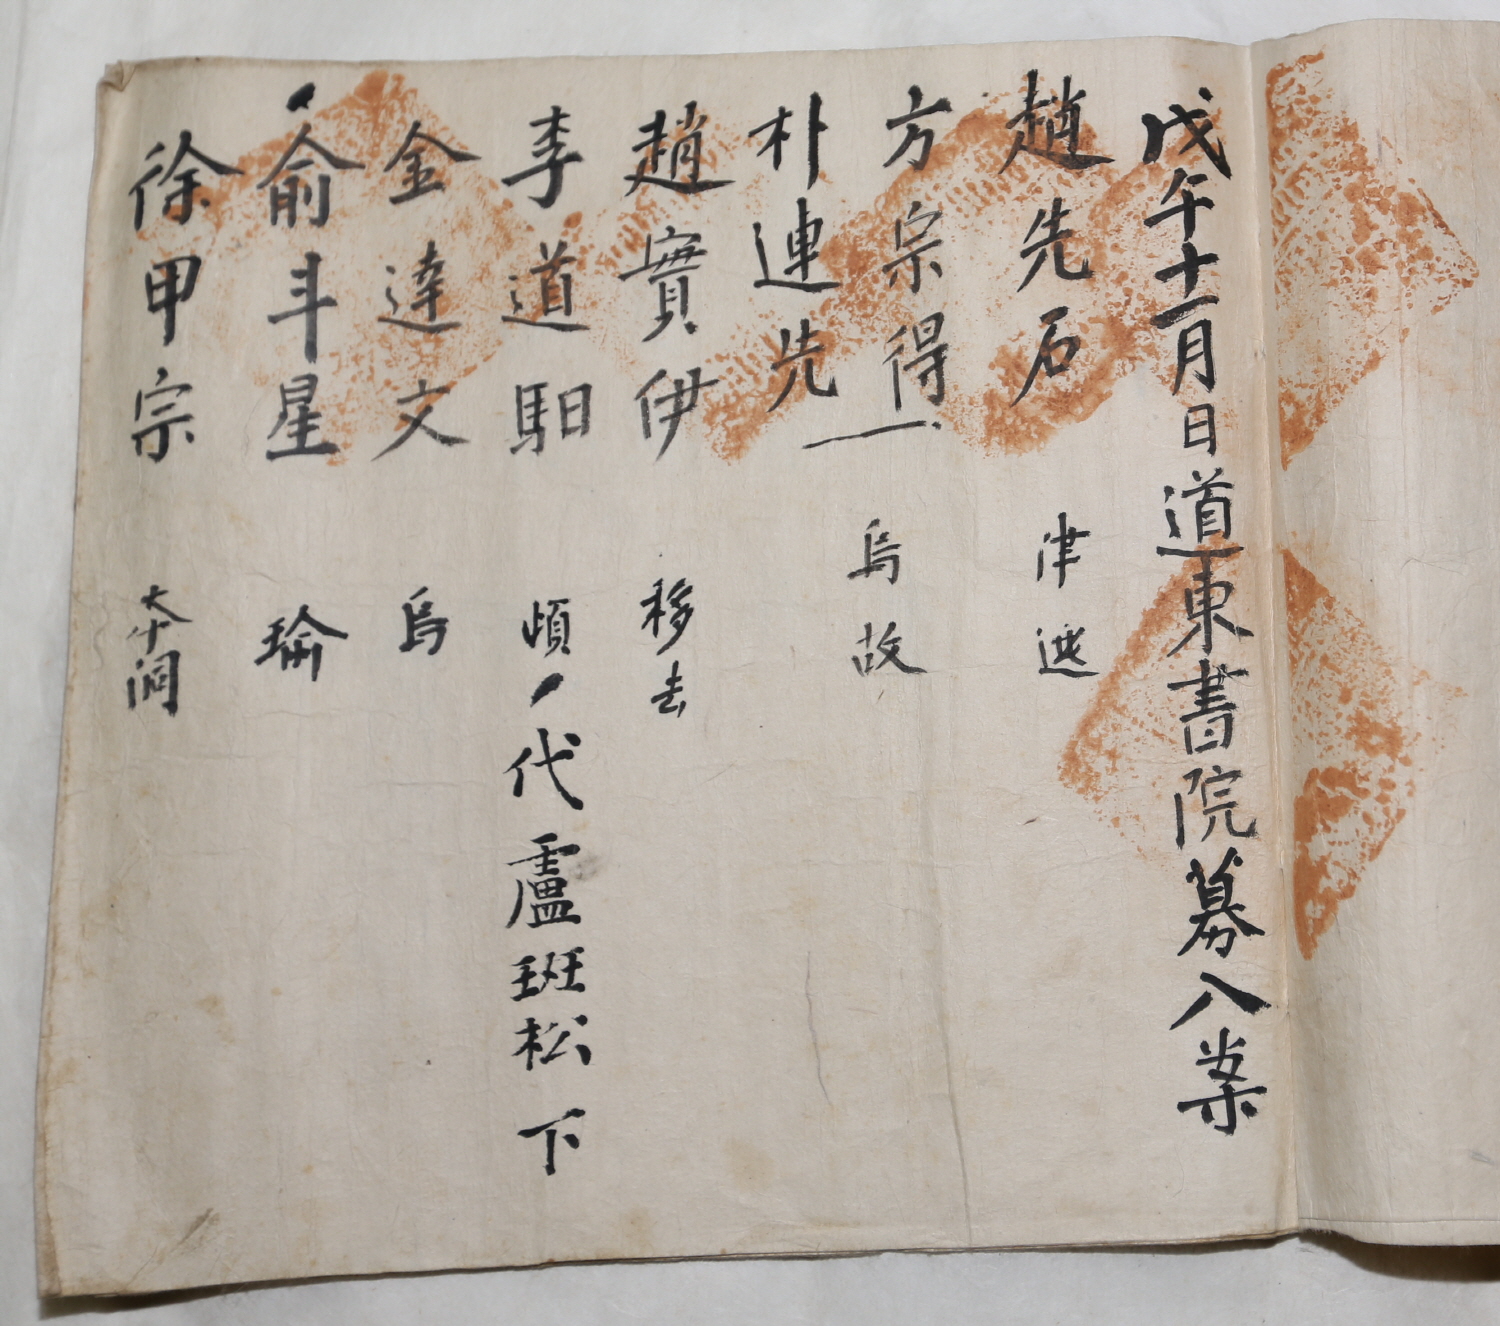 戊午十一月日道東書院募入案
趙先石 津
方宗得 烏故
朴連先
趙實伊 移去
李道馹 頉代盧班松下
金達文 烏
俞斗星 瑜
徐甲宗 大本洞